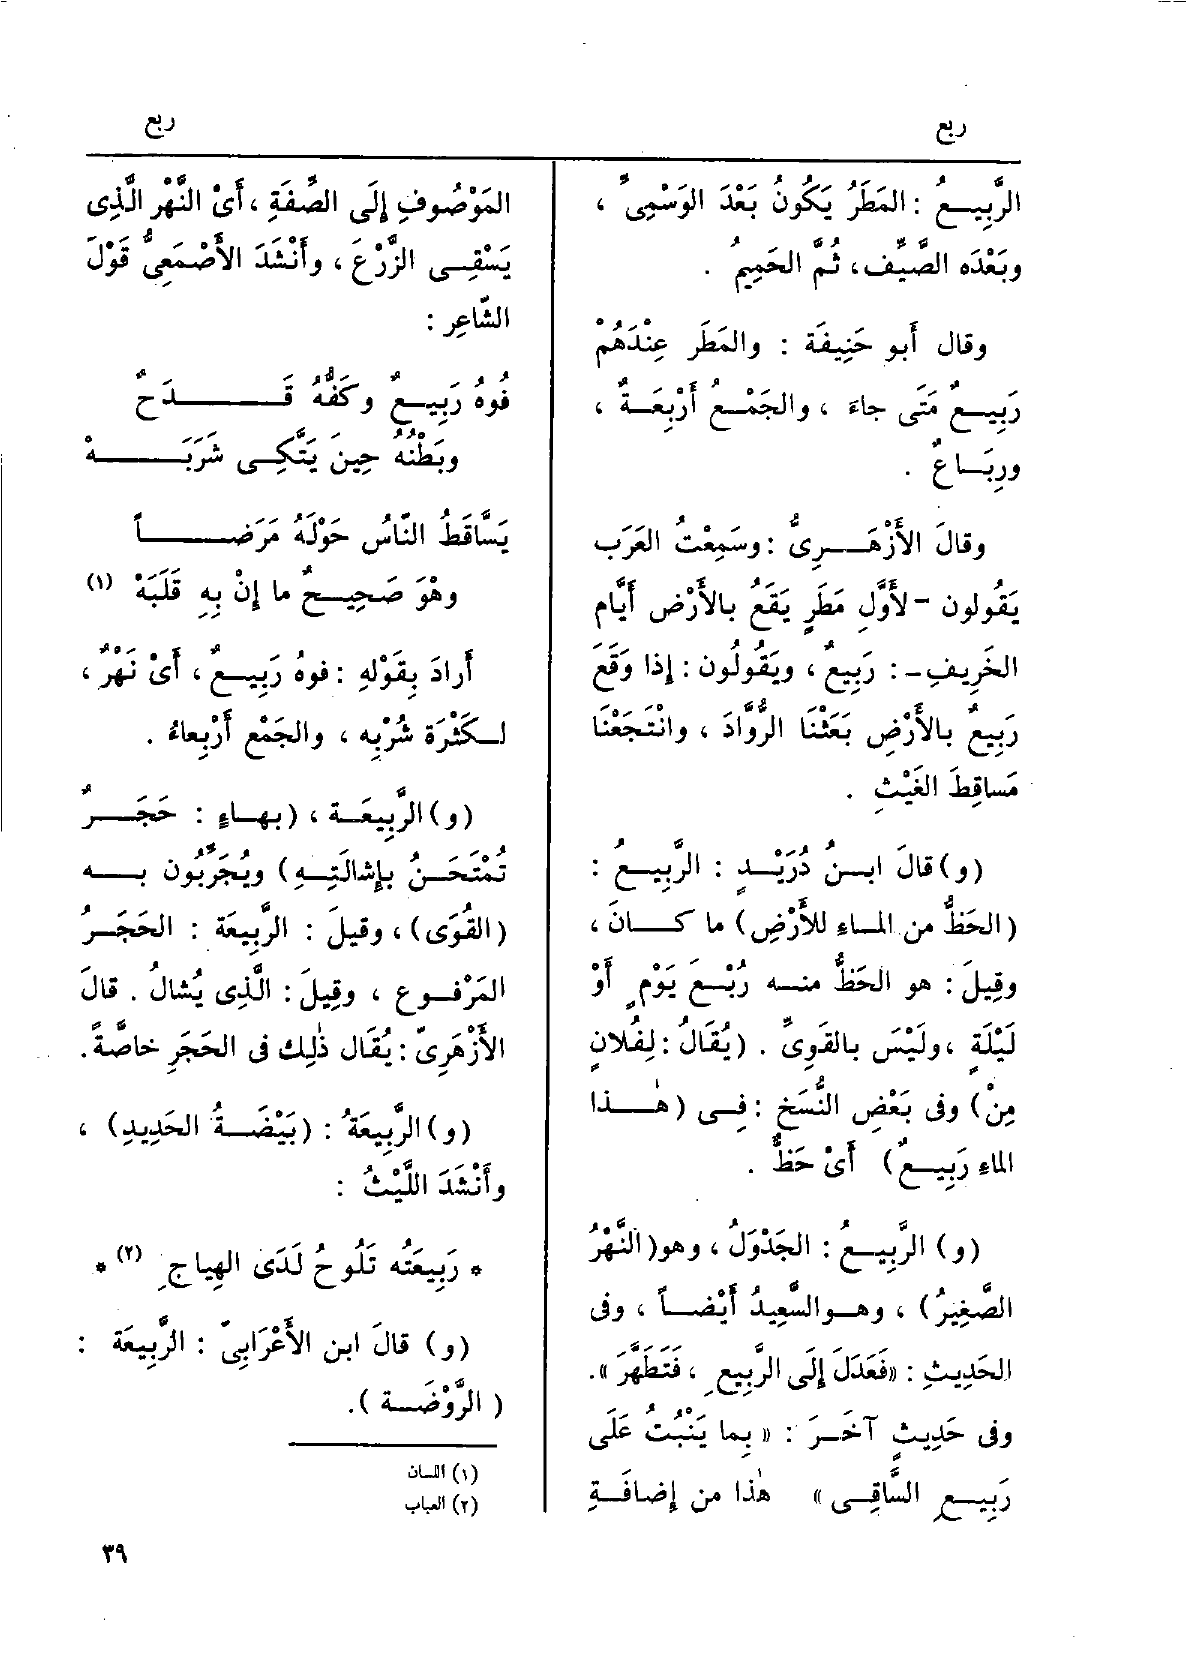 ربع
ربع
الرَّبِيـعُ : المَطَرُ يَكُونُ بَعْدَ الوَسْمِىِّ ،
وبَعْدَه الصَّيِّف، ثُمَّ الحَمِيمُ .
وقال أَبو حَنِيفَة : والمَطَر عِنْدَهُمْ
رَبِيـعٌ مَتَى جاءَ ، والجَمْـعُ أَرْبِعَـةٌ ،
ورِبَـاعٌ .
وقالَ الأَزْهَـرِىُّ : وسَمِعْتُ العَرَب
يَقُولون -لأَوَّلِ مَطَرٍ يَقَعُ بالأَرْض أَيّام
الخَرِيفِـ : رَبِيعٌ ، ويَقُولُون : إِذا وَقَعَ
رَبِيعٌ بالأَرْضِ بَعَثْنَا الرُّوّادَ ، وانْتَجَعْنَا
مَساقِطَ الغَيْثِ .
(و) قالَ ابـنُ دُرَيْـدٍ : الرَّبِيـعُ :
(الحَظُّ من المـاءِ للأَرْضِ) ما كـانَ ،
وقِيلَ : هو الحَظُّ منـه رُبْـعَ يَوْمٍ أَوْ
لَيْلَةٍ ، ولَيْسَ بالقَوِىِّ . (يُقَالُ : لِفُلانٍ
مِنْ) وفى بَعْضِ النُّسَخِ : فِـى (هٰـذا
الماءِ رَبِيـعٌ) أَىْ حَظٌّ .
(و) الرَّبِيـعُ : الجَدْوَلُ ، وهو (النَّهْرُ
الصَّغِيرُ) ، وهـو السَّعِيدُ أَيْضـاً ، وفى
الحَدِيثِ : «فَعَدَلَ إِلَى الرَّبِيعِ ، فَتَطَهَّرَ».
وفى حَدِيثٍ آخَـرَ : « بِما يَنْبُتُ عَلَى
رَبِيـعِ السَّاقِـى » هٰذا من إِضافَـةِ
المَوْصُوفِ إِلَى الصِّفَةِ ، أَىْ النَّهْر الَّذِى
يَسْقِـى الزَّرْعَ ، وأَنْشَدَ الأَصْمَعِىُّ قَوْلَ
الشّاعِر :
فُوهُ رَبِيـعٌ وكَفُّهُ قَــــدَحٌ
وبَطْنُهُ حِينَ يَتَّكِـى شَرَبَــــهْ
يَسَّاقَطُ النّاسُ حَوْلَهُ مَرَضــــاً
وهْوَ صَحِيـحٌ ما إِنْ بِهِ قَلَبَهْ (١)
أَرادَ بِقَوْلِهِ : فوهُ رَبِيـعٌ ، أَىْ نَهْرٌ ،
لـكَثْرَة شُرْبِه ، والجَمْع أَرْبِعاءُ .
(و) الرَّبِيعَـة ، (بهـاءٍ : حَجَـرٌ
تُمْتَحَـنُ بإِشالَتِـهِ) ويُجَرِّبُون بـه
(القُوَى) ، وقيلَ : الرَّبِيعَة : الحَجَـرُ
المَرْفـوع ، وقِيلَ : الَّذِى يُشالُ . قالَ
الأَزْهَرِىّ : يُقَال ذٰلِك فى الحَجَرِ خاصَّةً .
(و) الرَّبِيعَةُ : (بَيْضَـةُ الحَدِيدِ) ،
وأَنْشَدَ اللَّيْثُ :
* رَبِيعَتُه تَلُوحُ لَدَى الهِياجِ (٢) *
(و) قالَ ابن الأَعْرَابِىّ : الرَّبِيعَة :
( الرَّوْضَـة ).
(١) اللسان
(٢) العباب
٣٩